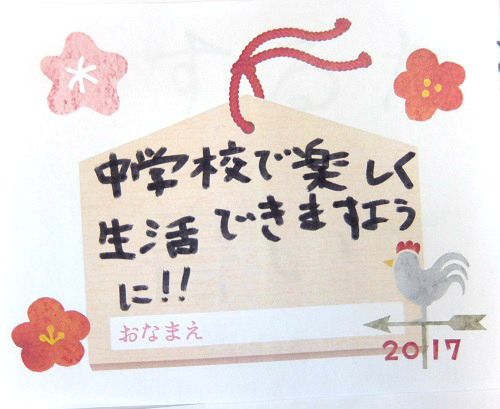 中学校で楽しく
生活できますよう
に!!
おなまえ
2017